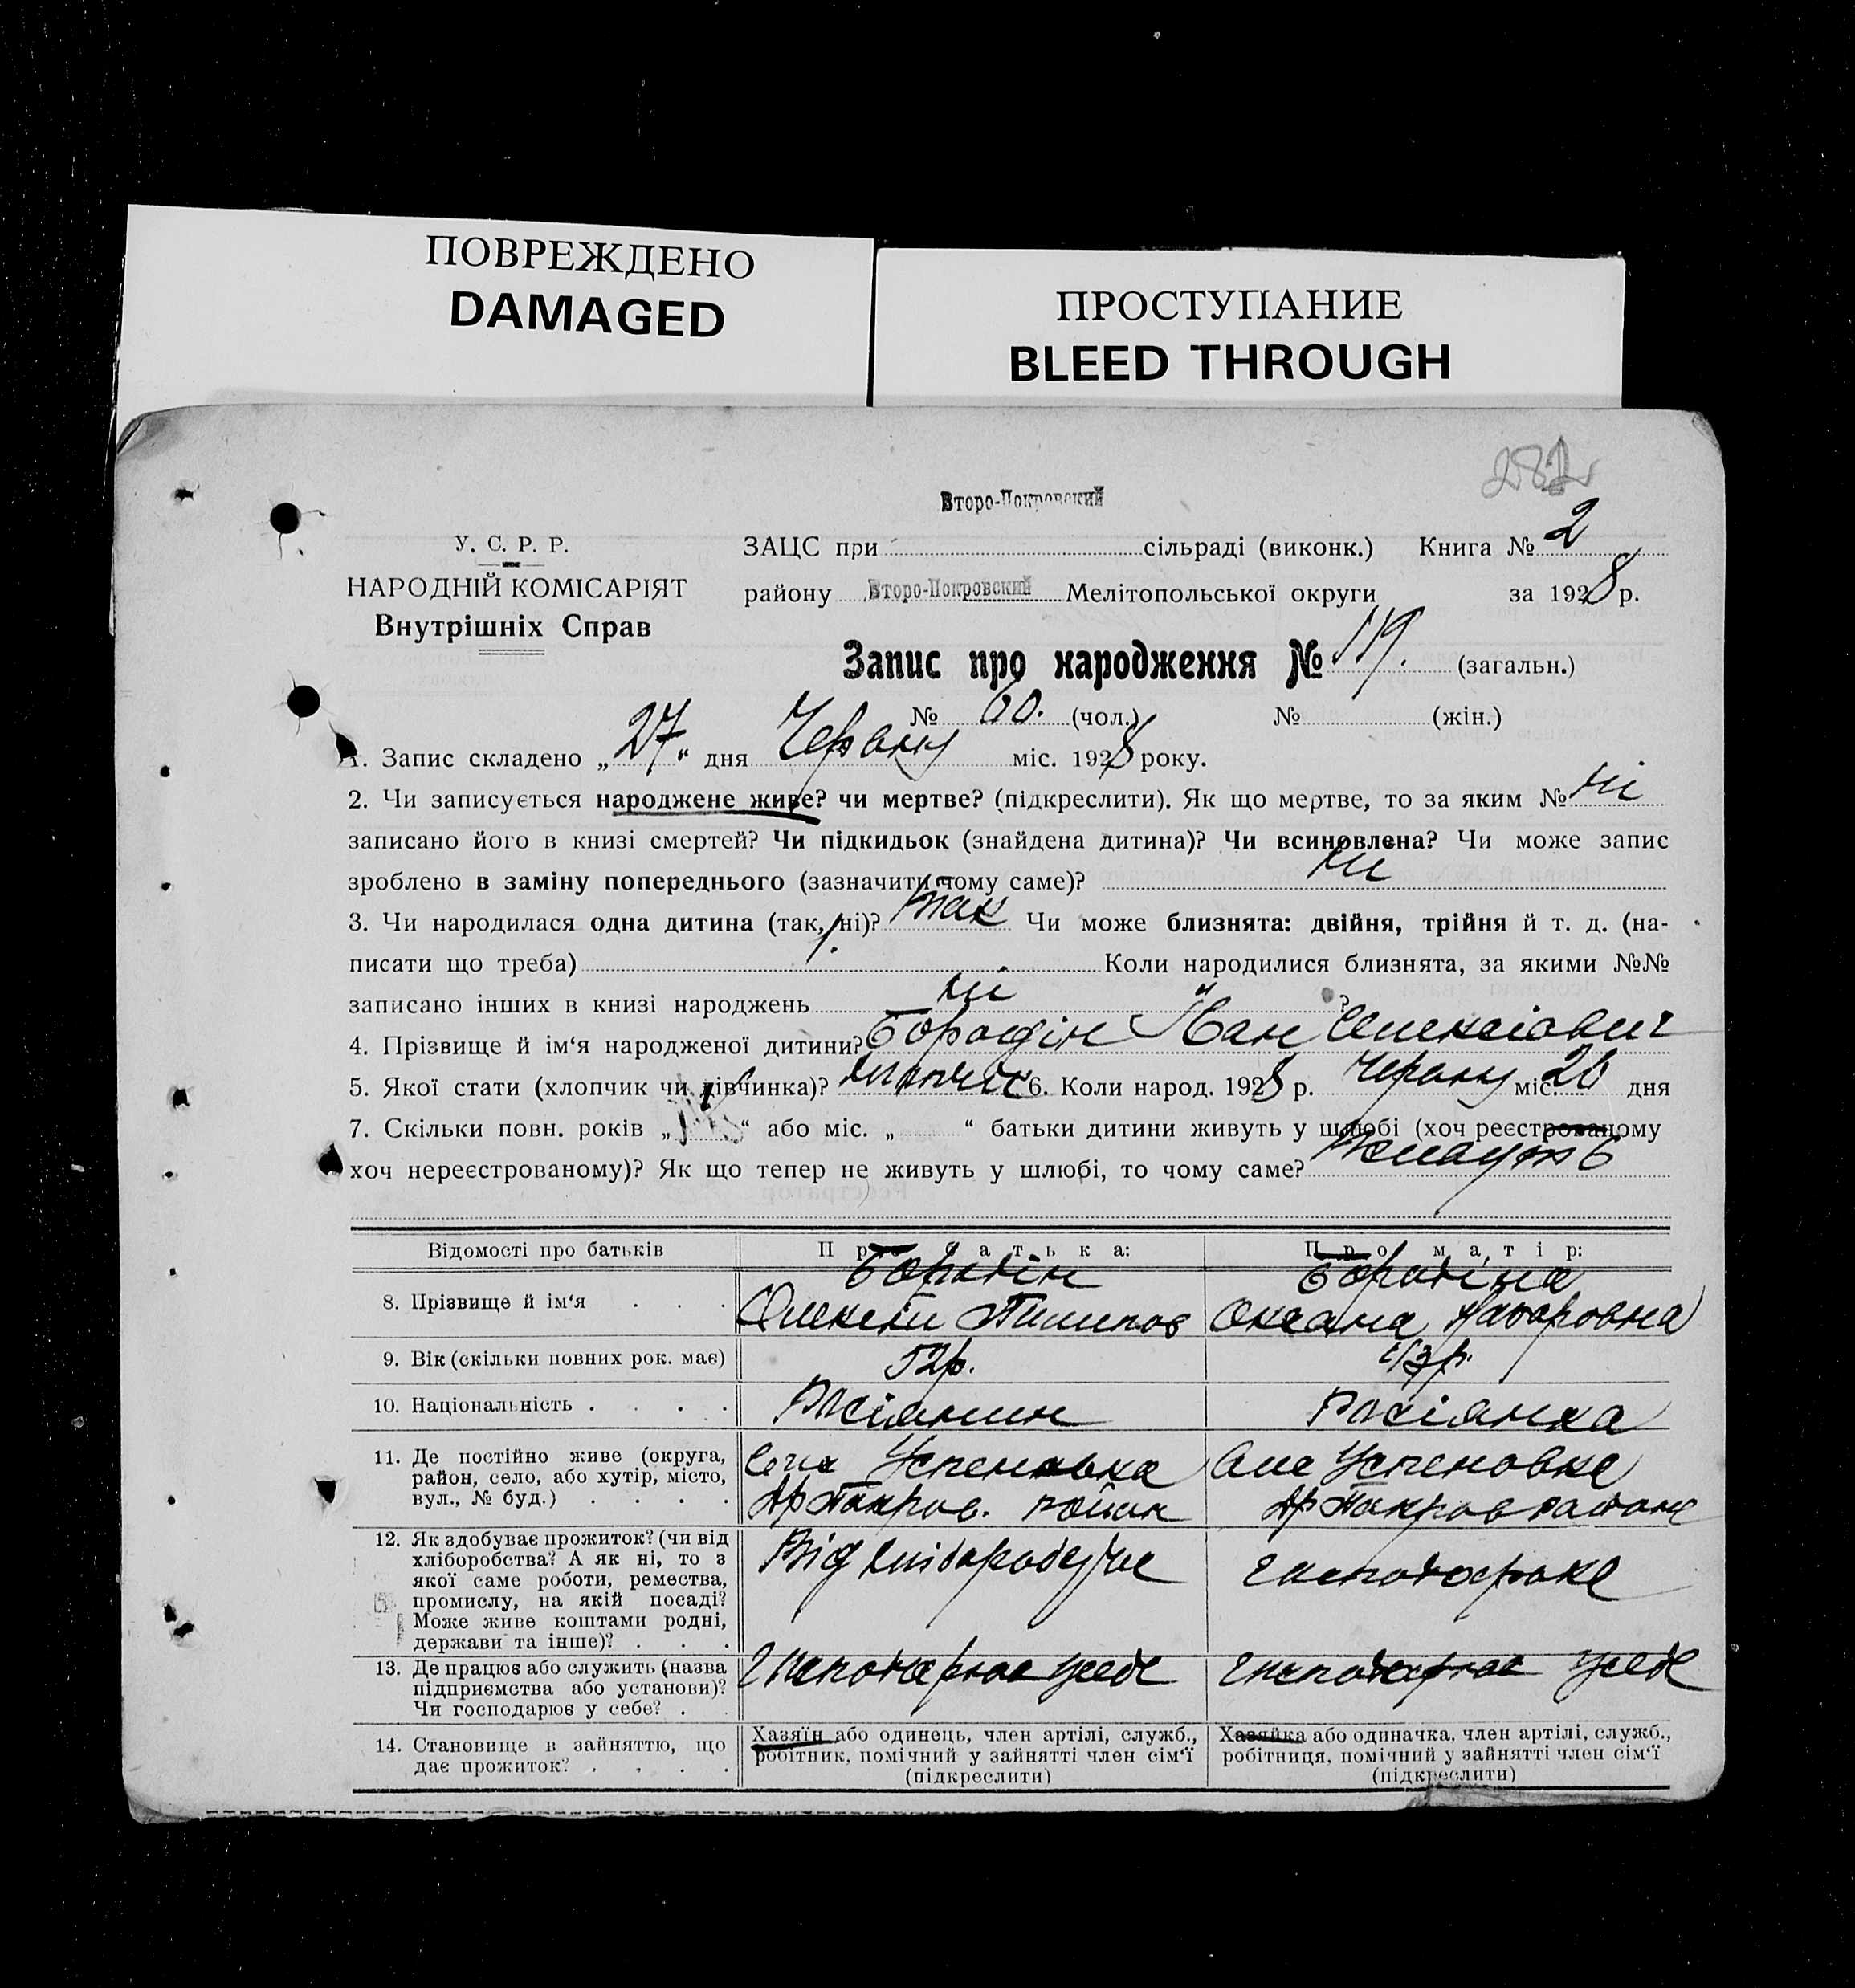 ПОВРЕЖДЕНО
DAMAGED
ПРОСТУПАНИЕ
BLEED THROUGH
282
Второ-Покровский
У. С. Р. Р.
НАРОДНІЙ КОМІСАРІЯТ
Внутрішніх Справ
ЗАЦС при сільраді (виконк.) Книга № 2
району Второ-Покровский Мелітопольської округи за 1928 р.
Запис про народження № 119. (загальн.)
№ 60. (чол.) № (жін.)
1. Запис складено „27“ дня Червня міс. 1928 року.
2. Чи записується народжене живе? чи мертве? (підкреслити). Як що мертве, то за яким № ні
записано його в книзі смертей? Чи підкидьок (знайдена дитина)? Чи всиновлена? Чи може запис
зроблено в заміну попереднього (зазначити чому саме)? ні
3. Чи народилася одна дитина (так, ні)? так Чи може близнята: двійня, трійня й т. д. (на-
писати що треба) Коли народилися близнята, за якими №№
записано інших в книзі народжень ні ?
4. Прізвище й ім‘я народженої дитини? Бородін Йван Олексіович
5. Якої стати (хлопчик чи дівчинка)? хлопчик 6. Коли народ. 1928 р. Червня міс. 26 дня
7. Скільки повн. років „ “ або міс. „ “ батьки дитини живуть у шлюбі (хоч реєстрованому
хоч нереєстрованому)? Як що тепер не живуть у шлюбі, то чому саме?
Відомості про батьків Про батька: Про матір:
8. Прізвище й ім‘я . . . Бородін Бородіна
Олексій Пилипов Оксана Назаровна
9. Вік (скільки повних рок. має) 52р. 43р.
10. Національність . . . . Росіянин Росіянка
11. Де постійно живе (округа, район, село, або хутір, місто, вул., № буд.) . . . .
Село Успеновка Село Успеновка
Др Покров. район Др Покров району
12. Як здобуває прожиток? (чи від хліборобства? А як ні, то з якої саме роботи, ремества, промислу, на якій посаді? Може живе коштами родні, держави та інше)? . . .
Від хліборобства господарка
13. Де працює або служить (назва підприємства або установи)? Чи господарює у себе? . .
господарює у себе господарює у себе
14. Становище в зайняттю, що дає прожиток? . . . .
Хазяїн або одинець, член артілі, служб., робітник, помічний у зайнятті член сім‘ї (підкреслити)
Хазяйка або одиначка, член артілі, служб., робітниця, помічний у зайнятті член сім‘ї (підкреслити)